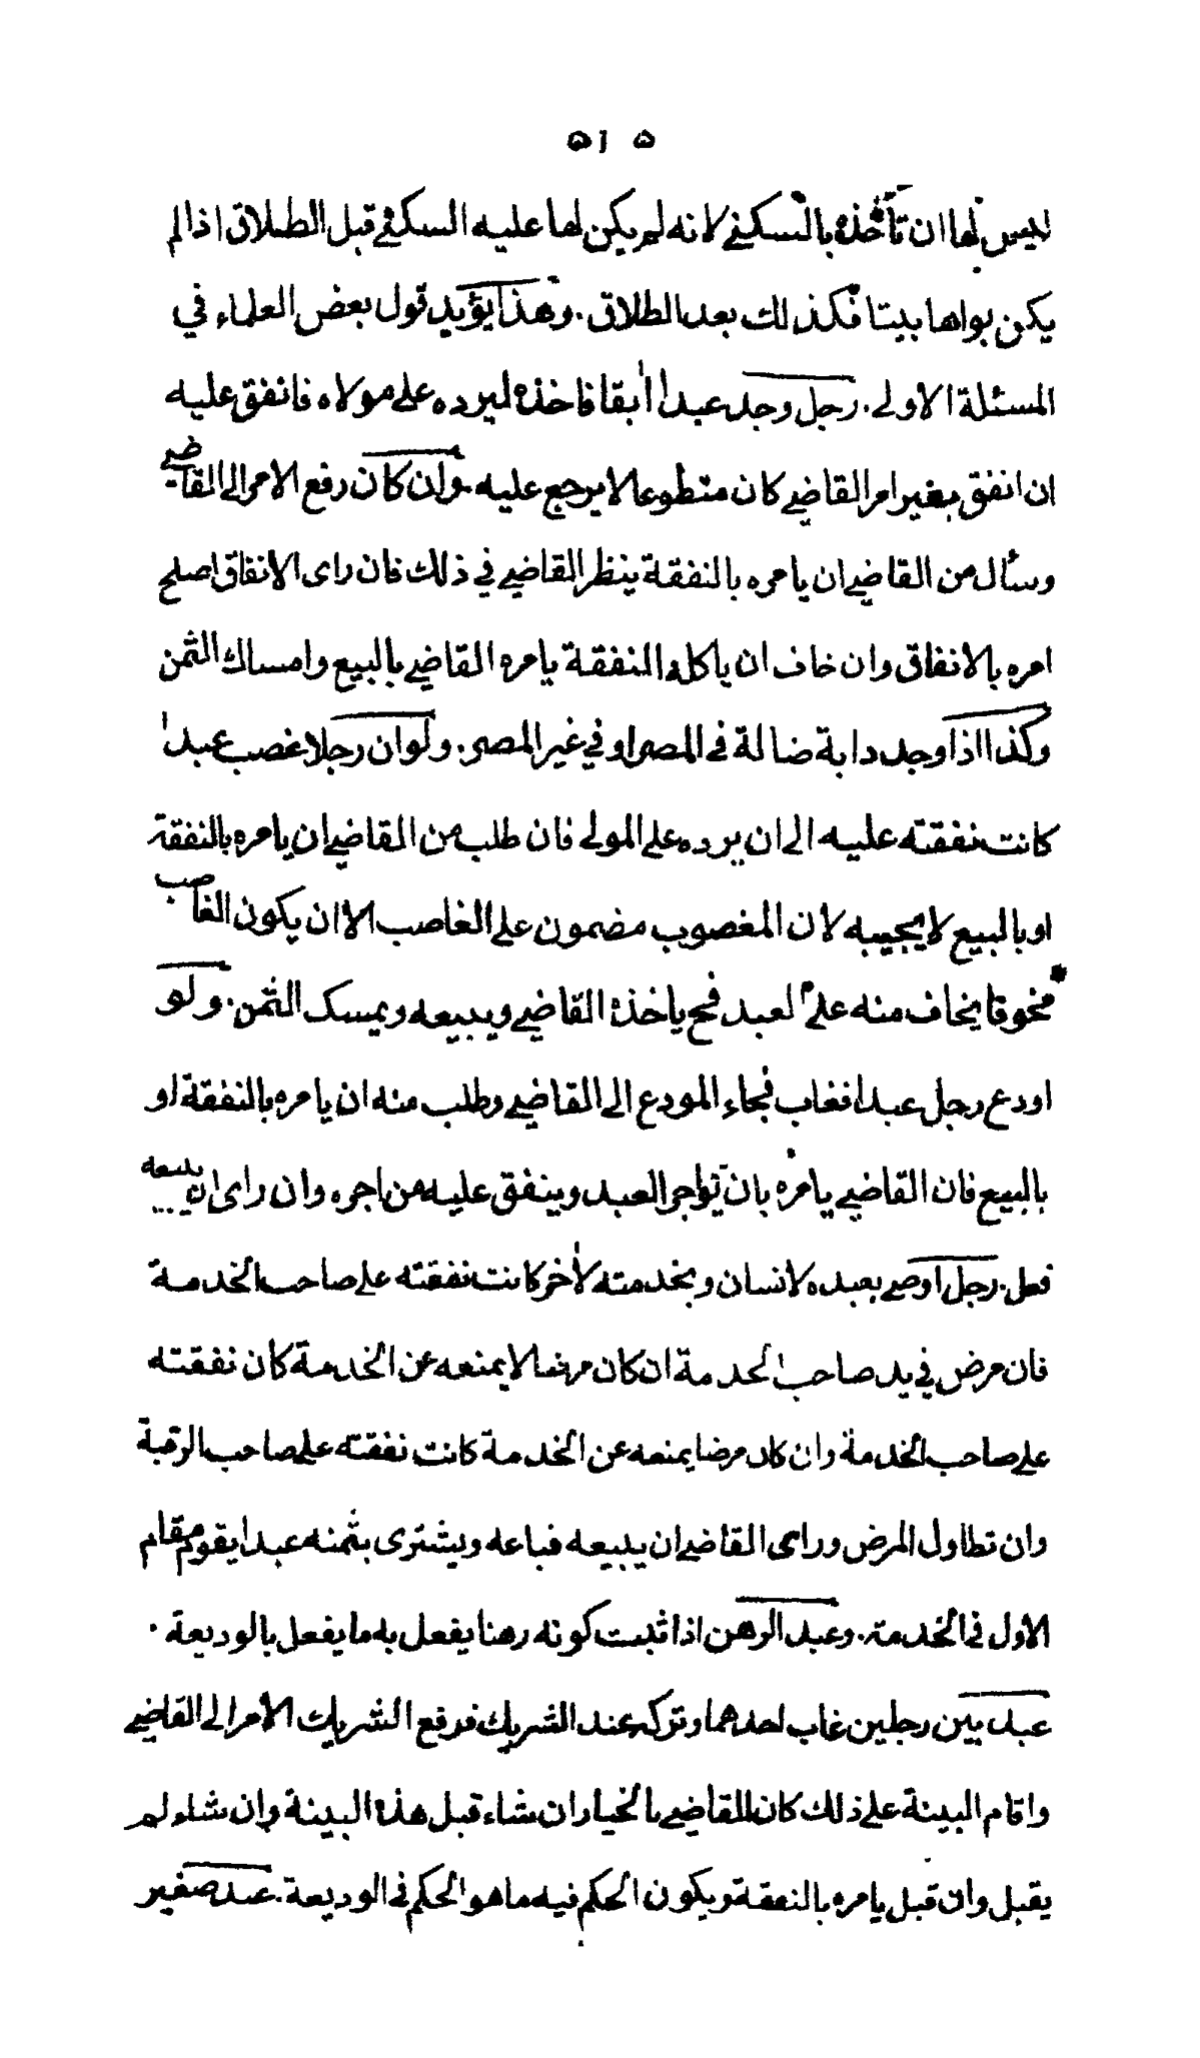 ٥١٥
ليس لها ان تأخذه بالسكنى لانه لم يكن لها عليه السكنى قبل الطلاق اذا لم
يكن بواها بيتا فكذلك بعد الطلاق. وهذا يؤيد قول بعض العلماء في
المسئلة الاولى. رجل وجد عبدا اٰبقا فاخذه ليرده على مولاه فانفق عليه
ان انفق بغير امر القاضي كان متطوعا لا يرجع عليه. وان كان رفع الامر الى القاضي
وسأل من القاضي ان يامره بالنفقة ينظر القاضي في ذلك فان راى الانفاق اصلح
امره بالانفاق وان خاف ان ياكله النفقة يامره القاضي بالبيع وامساك الثمن
وكذا اذا وجد دابة ضالة في المصر او في غير المصر. ولو ان رجلا غصب عبدا
كانت نفقته عليه الى ان يرده على المولى فان طلب من القاضي ان يامره بالنفقة
او بالبيع لا يجيبه لان المغصوب مضمون على الغاصب الا ان يكون الغاصب
مخوفا يخاف منه على العبد فح ياخذه القاضي ويبيعه ويمسك الثمن. ولو
اودع رجل عبدا فغاب فجاء المودع الى القاضي وطلب منه ان يامره بالنفقة او
بالبيع فان القاضي يامره بان يؤاجر العبد وينفق عليه من اجره وان راى ان يبيعه
فعل. رجل اوصى بعبده لانسان وبخدمته لاٰخر كانت نفقته على صاحب الخدمة
فان مرض في يد صاحب الخدمة ان كان مرضا لا يمنعه عن الخدمة كان نفقته
على صاحب الخدمة وان كان مرضا يمنعه عن الخدمة كانت نفقته على صاحب الرقبة
وان تطاول المرض وراى القاضي ان يبيعه فباعه ويشترى بثمنه عبدا يقوم مقام
الاول في الخدمة. وعبد الرهن اذا ثبت كونه رهنا يفعل به ما يفعل بالوديعة.
عبد بين رجلين غاب احدهما وتركه عند الشريك فرفع الشريك الامر الى القاضي
واقام البينة على ذلك كان للقاضي بالخيار ان شاء قبل هذه البينة وان شاء لم
يقبل وان قبل يامره بالنفقة ويكون الحكم فيه ما هو الحكم في الوديعة. عبد صغير